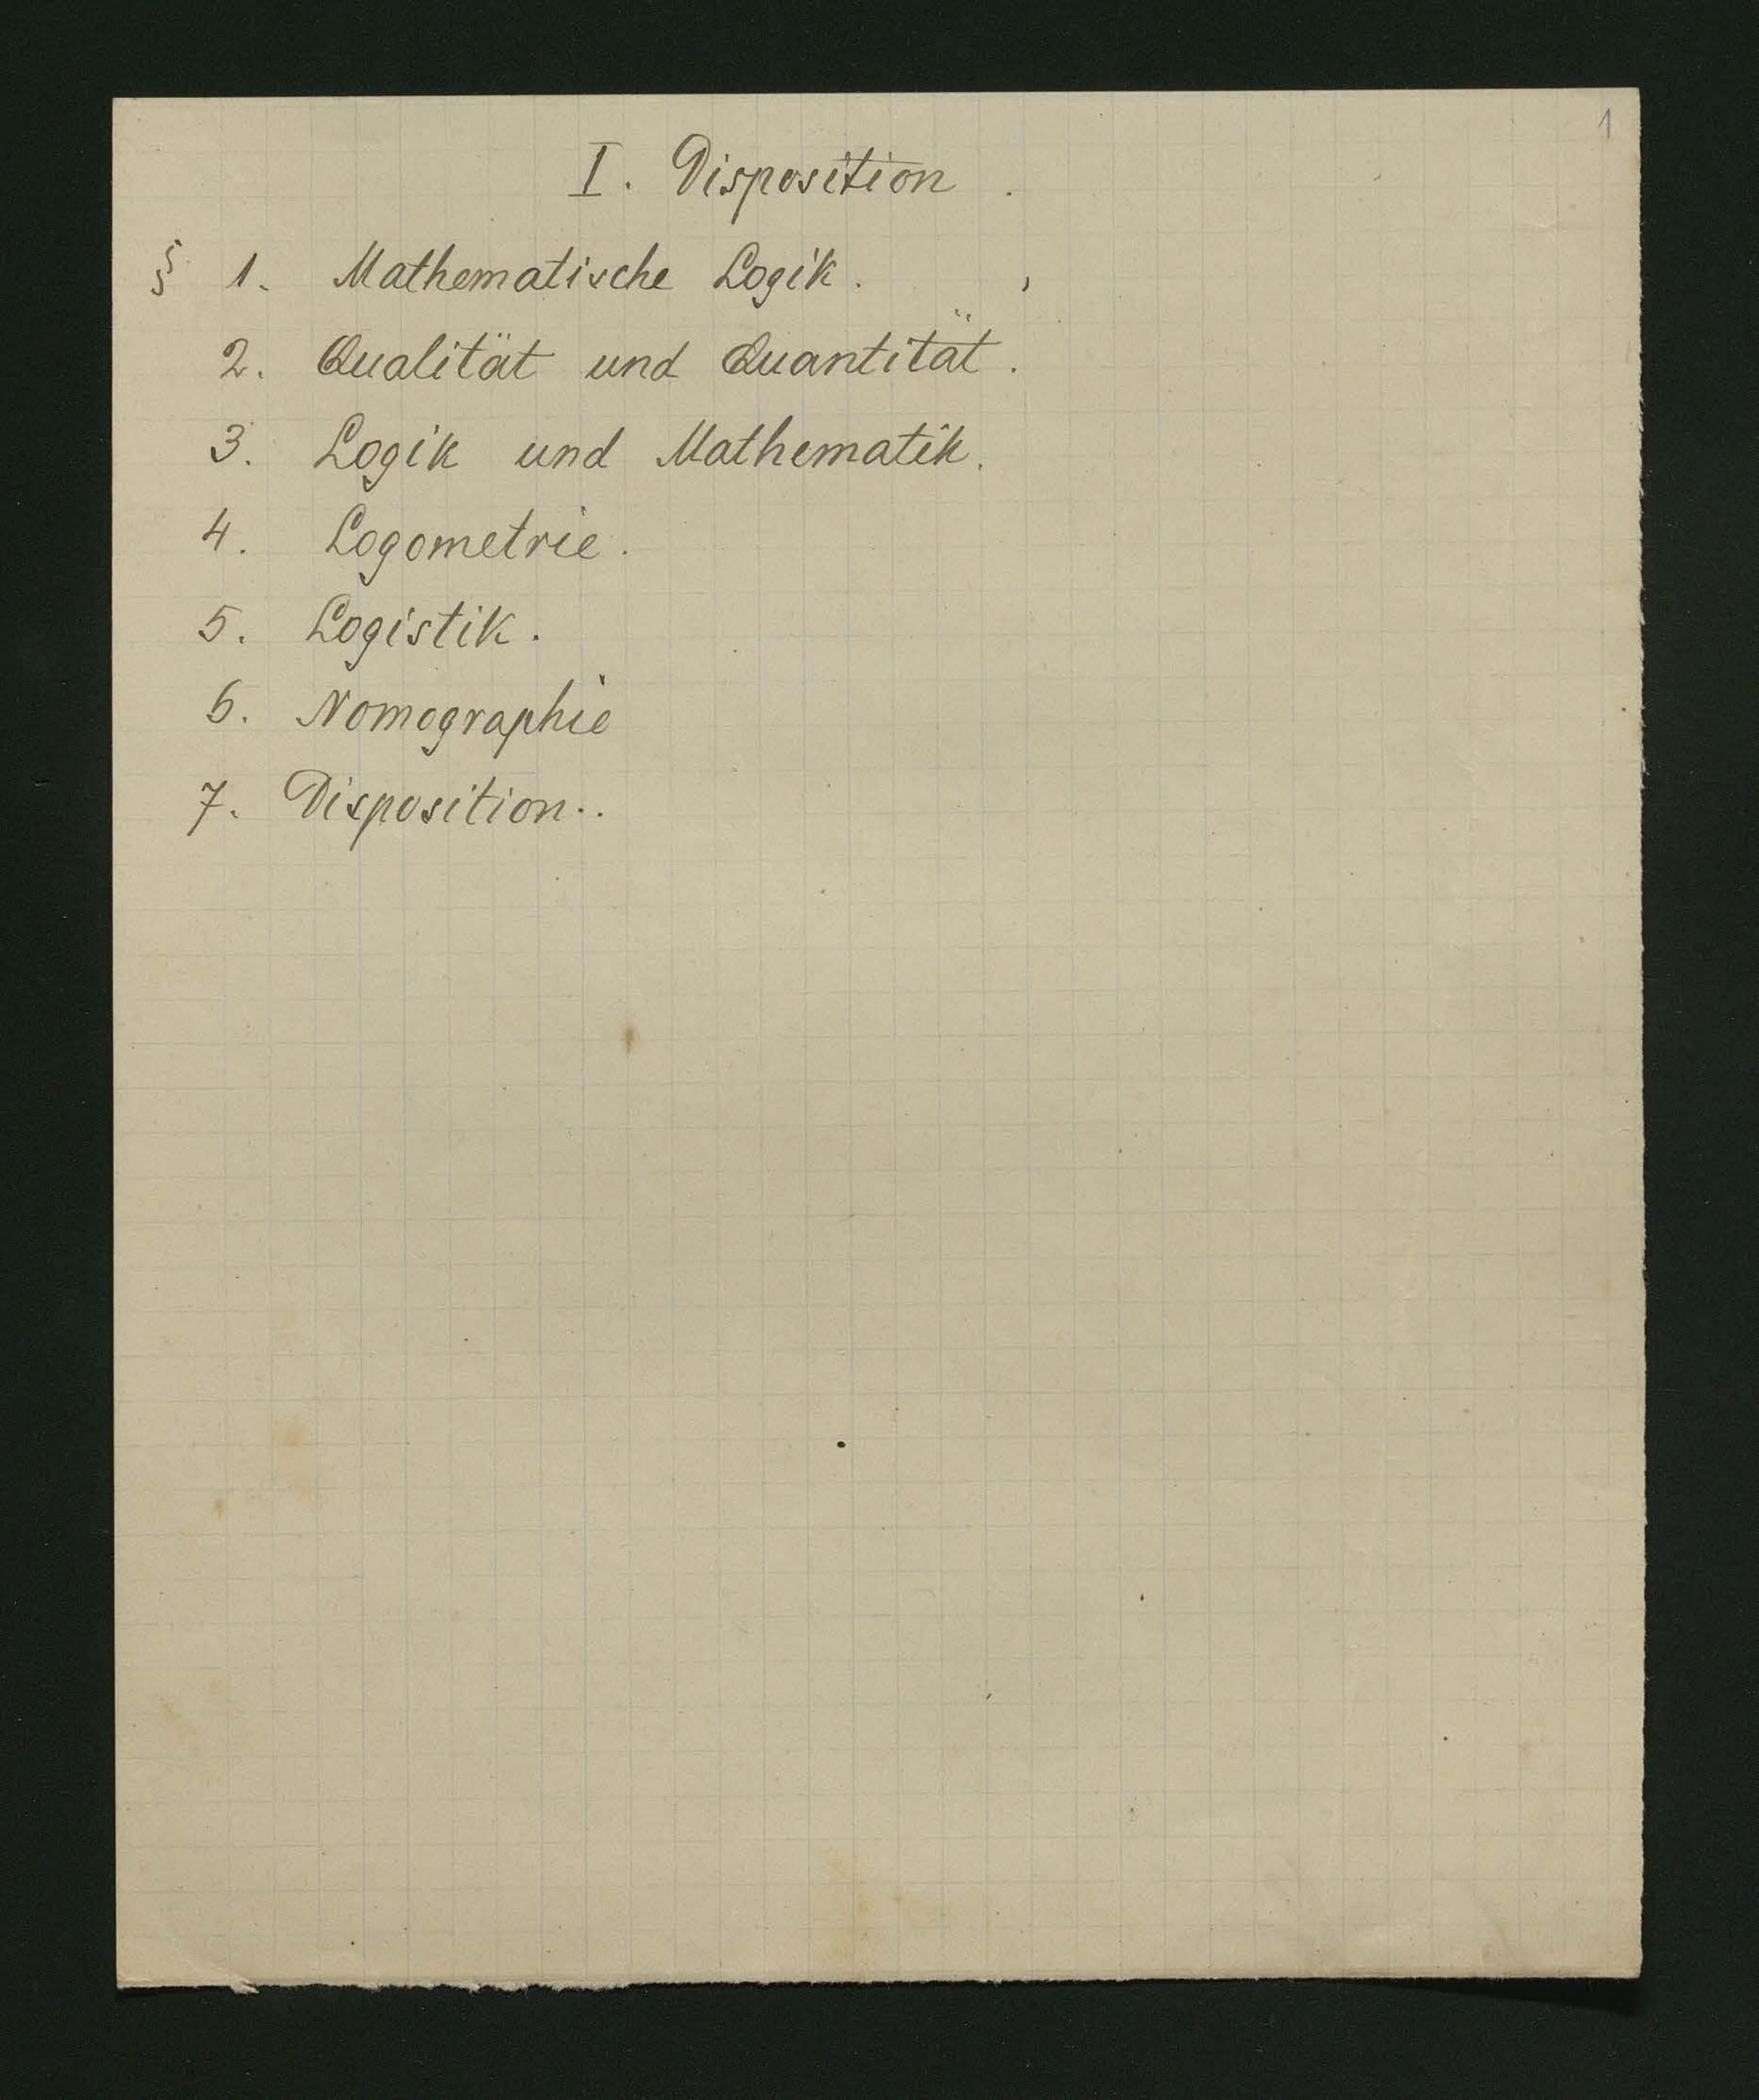 1
I. Disposition.
§ 1. Mathematische Logik.
2. Qualität und Quantität.
3. Logik und Mathematik.
4. Logometrie.
5. Logistik.
6. Nomographie
7. Disposition..